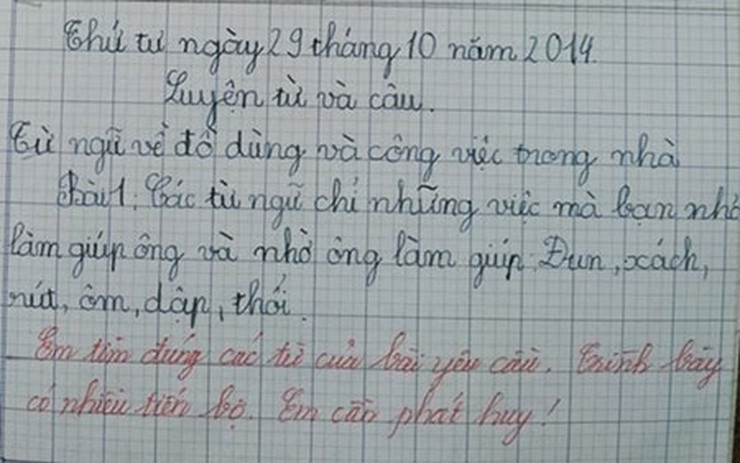 Thứ tư ngày 29 tháng 10 năm 2014.
Luyện từ và câu.
Từ ngữ về đồ dùng và công việc trong nhà
Bài 1: Các từ ngữ chỉ những việc mà bạn nhỏ
làm giúp ông và nhờ ông làm giúp: Đun, xách,
rút, ôm, dập, thổi.
Em tìm đúng các từ của bài yêu cầu. Trình bày
có nhiều tiến bộ. Em cần phát huy!